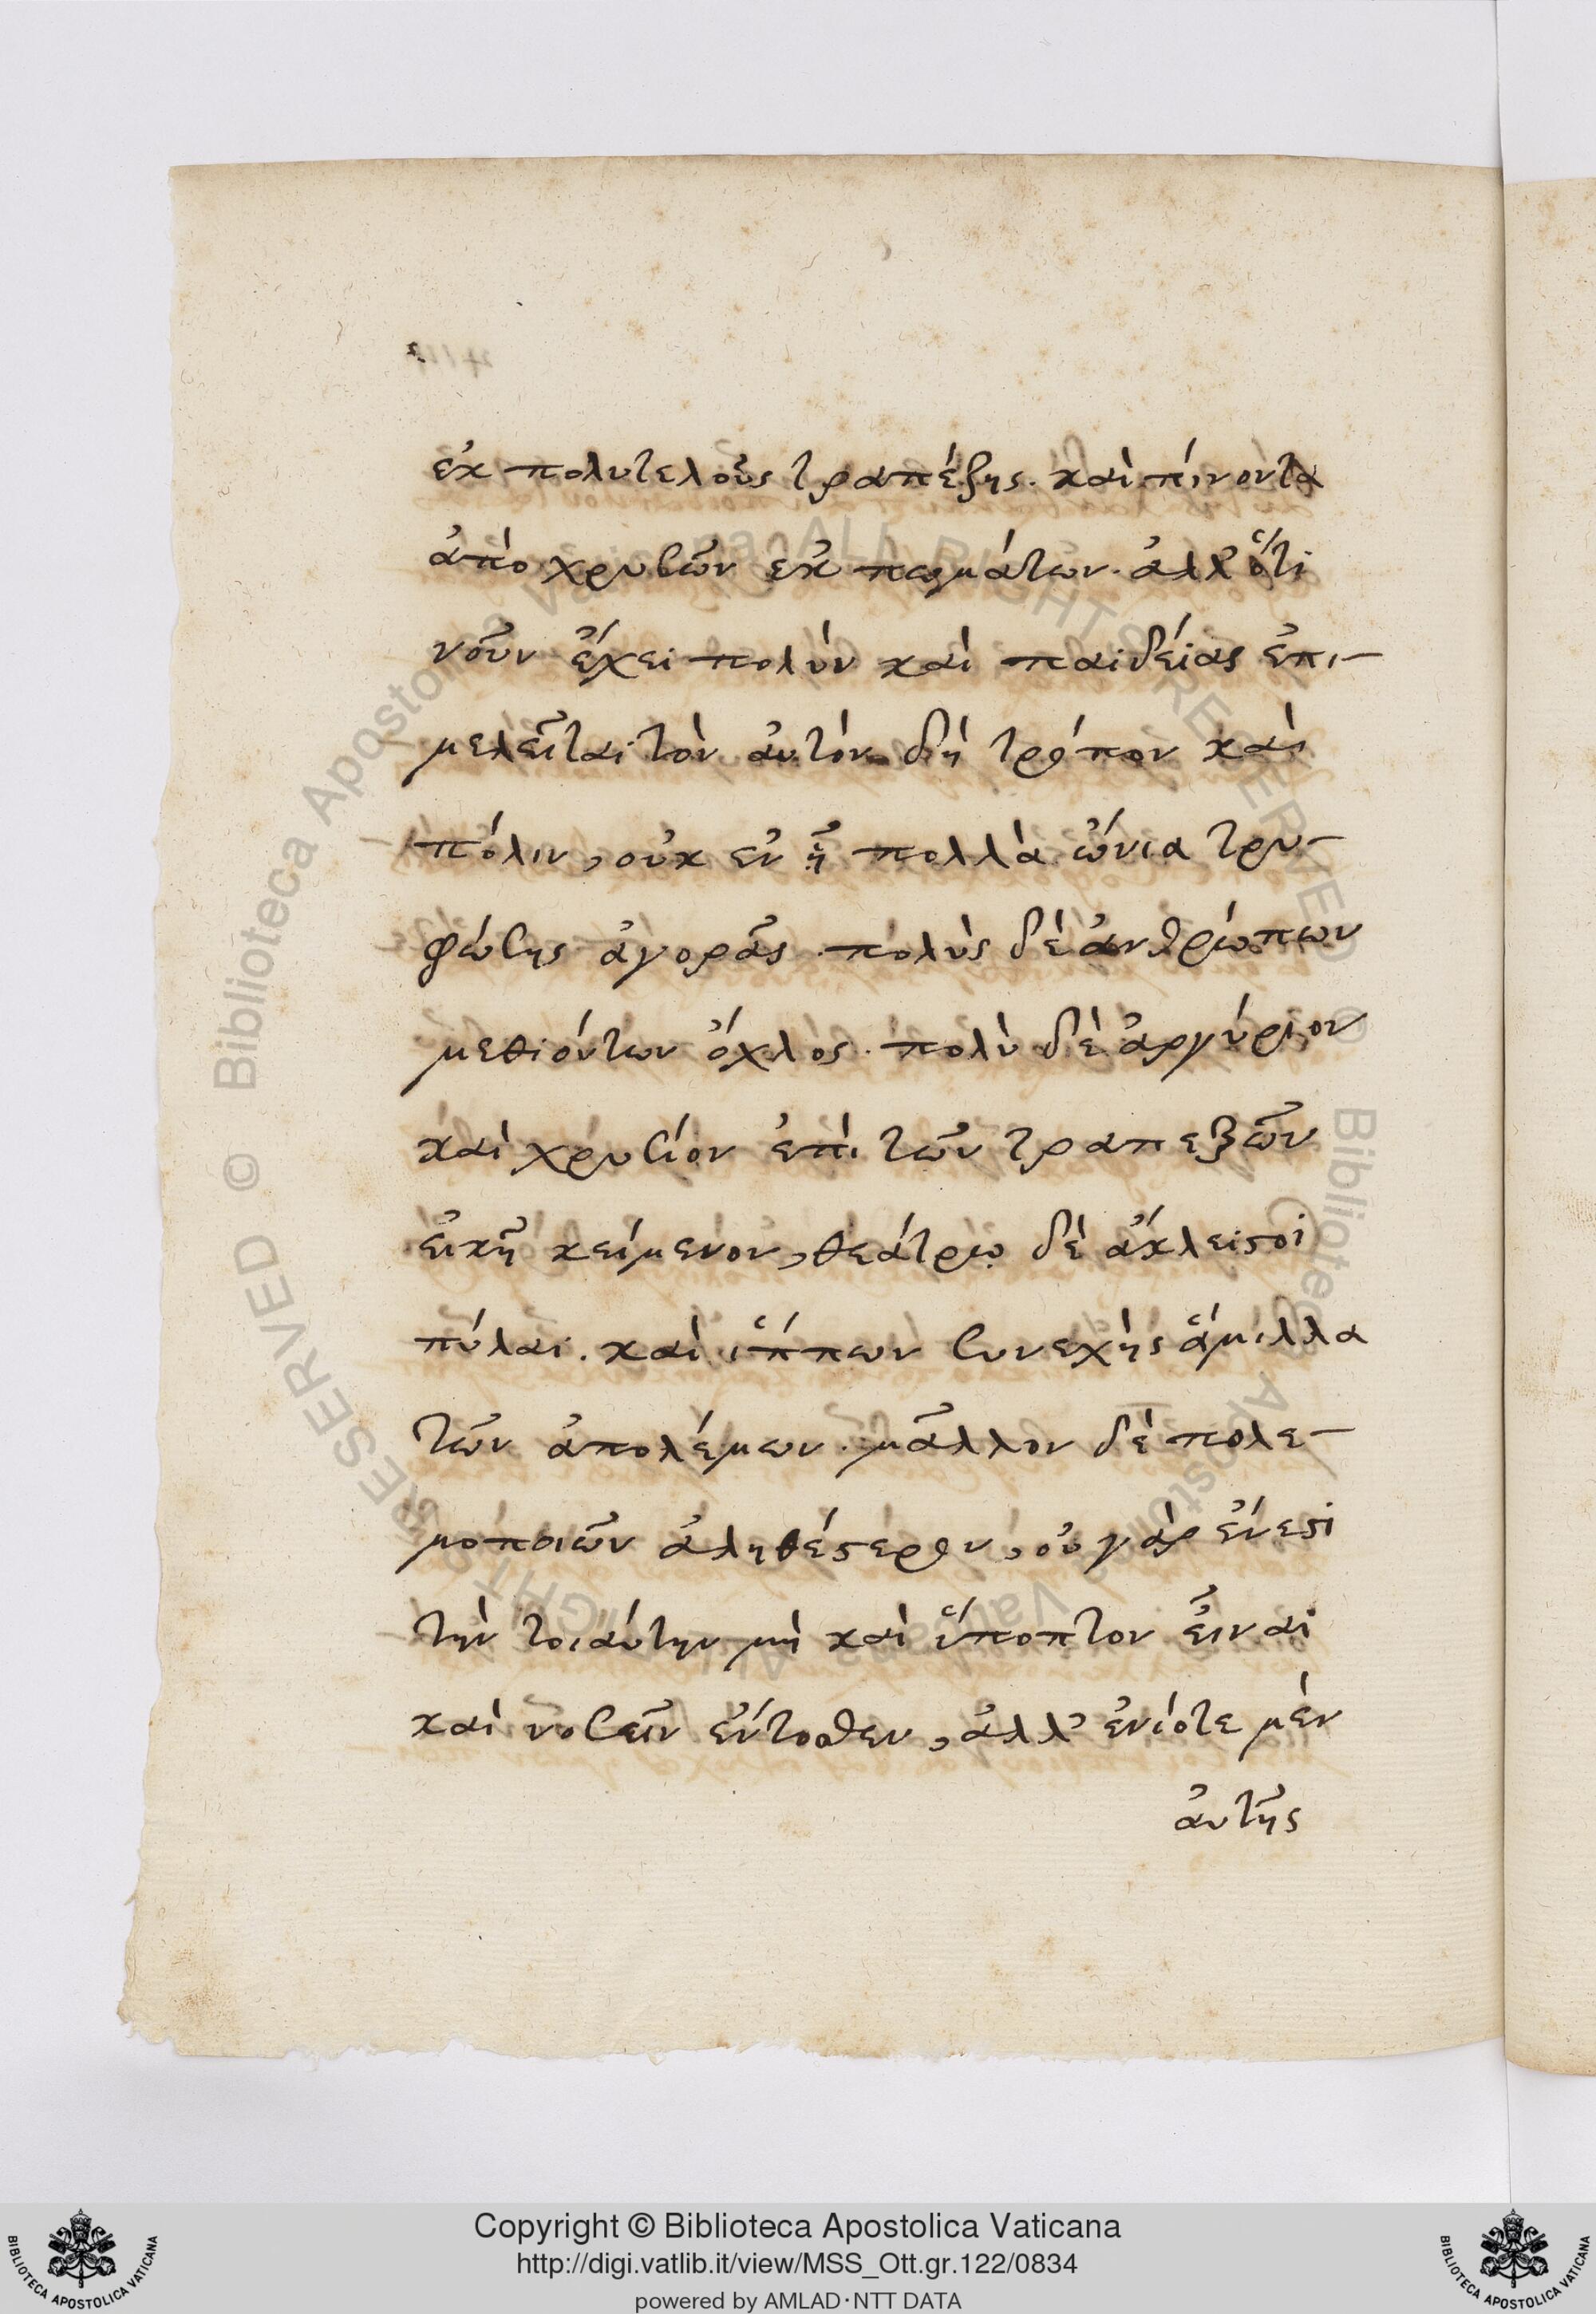 ἐκ πολυτελοῦς τραπέζης. καὶ πίνοντα
ἀπὸ χρυσῶν ἐκ πωμάτων. ἀλλ' ὅτι
νοῦν ἔχει πολὺν καὶ παιδείας ἐπι-
μελεῖται τὸν αὐτὸν δὴ τρόπον καὶ
πόλιν, οὐκ ἐν ᾗ πολλὰ ὤνια τρυ-
φώσης ἀγορᾶς. πολὺς δὲ ἀνθρώπων
μεθιόντων ὄχλος. πολὺ δὲ ἀργύριον
καὶ χρυσίον ἐπὶ τῶν τραπεζῶν
εἰκῆ κείμενον, θεάτρῳ δὲ ἄκλειστοι
πύλαι. καὶ ἵππων συνεχὴς ἅμιλλα
τῶν ἀπολέμων. μᾶλλον δὲ πολε-
μοποιῶν ἀληθέστερον, οὐ γὰρ ἔνεστι
τὴν τοιαύτην μὴ καὶ ὕποπτον εἶναι
καὶ νοσεῖν ἔντοσθεν, ἀλλ' ἐνίοτε μὲν
αὐτῆς
Copyright © Biblioteca Apostolica Vaticana
http://digi.vatlib.it/view/MSS_Ott.gr.122/0834
powered by AMLAD·NTT DATA
BIBLIOTECA APOSTOLICA VATICANA
BIBLIOTECA APOSTOLICA VATICANA